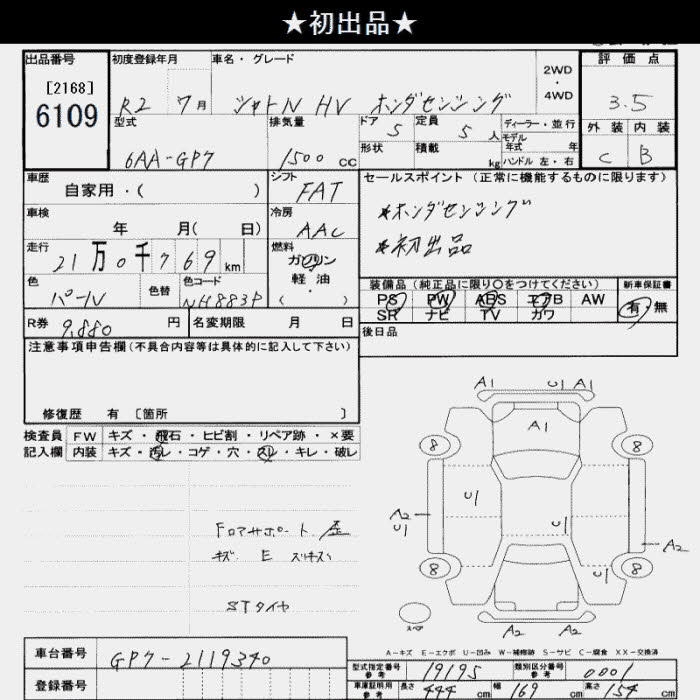 ★初出品★
出品番号
[2168]
6109
初度登録年月
R2 7月
車名・グレード
シャトル HV ホンダセンシング
2WD
・
4WD
評価点
3.5
外装 内装
C B
型式
6AA-GP7
排気量
1500 cc
ドア 5
定員 5人
形状
積載 kg
ディーラー・並行
モデル年式 年
ハンドル 左・右
車歴
自家用・( )
シフト
FAT
車検
年 月( 日)
冷房
AAC
走行
21万0千769km
燃料
ガソリン
軽油
( )
色
パール
色替
色コード
NH883P
セールスポイント (正常に機能するものに限ります)
*ホンダセンシング
*初出品
装備品 (純正品に限り○をつけてください)
PS PW ABS エアB AW
SR ナビ TV カワ
新車保証書
有・無
後日品
R券 9,880円
名変期限 月 日
注意事項申告欄(不具合内容等は具体的に記入して下さい)
修復歴 有 〔箇所 〕
検査員記入欄
FW キズ・飛石・ヒビ割・リペア跡・×要
内装 キズ・汚レ・コゲ・穴・スレ・キレ・破レ
キズ E
STタイヤ
A1 U1 A1
A1
8 8
U1
A2
U1
U1
A2
8 8
U1
スペア
A2 A2
A-キズ E-エクボ U-凹み W-補修跡 S-サビ C-腐食 XX-交換済
車台番号
GP7-2119340
登録番号
型式指定番号 参考 19195
類別区分番号 参考 0001
車庫証明用 参考 長さ 444cm 幅 169cm 高さ 154cm